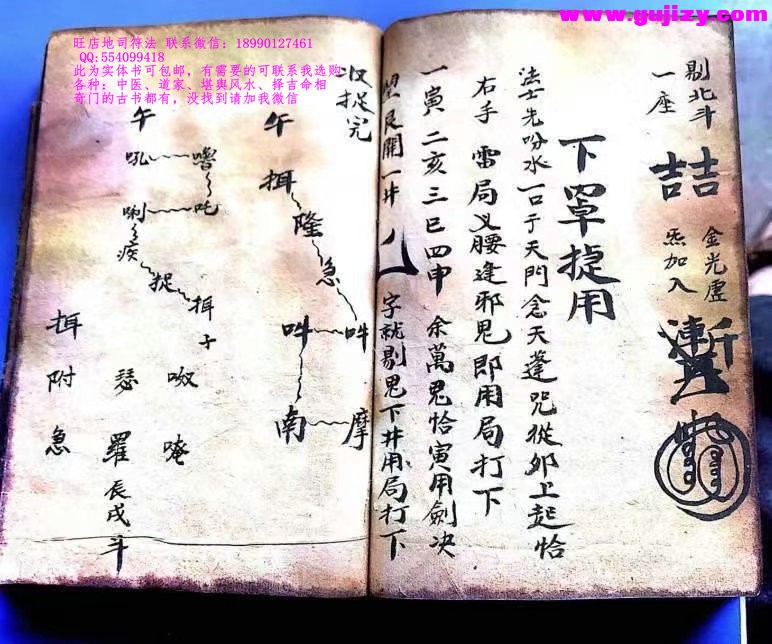 www.gujizy.com
旺店地司符法 联系微信：18990127461
QQ:554099418
此为实体书可包邮，有需要的可联系我选购
各种：中医、道家、堪舆风水、择吉命相
奇门的古书都有，没找到请加我微信
剔北斗
一座
喆喆
金光虚
炁加入
下罩捉用
法士先吩水一口于天門念天蓬咒從卯上起恰
右手雷局叉腰逢邪鬼即用局打下
一寅二亥三巳四申 余萬鬼恰寅用劍決
艮開一井 字就剔鬼下井用局打下
收捉完
午
挕
隆
急
吽 吽
南 摩
午
吼 嚕
唎 吒
痰
捉
挕
子
呶
唵
瑟
羅
辰戌
斗
挕
附
急